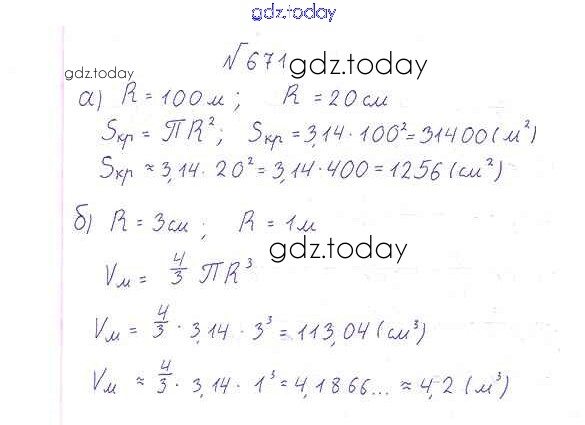 gdz.today
№671 gdz.today
gdz.today
а) R = 100 м; R = 20 см
Sкр = ПR²; Sкр = 3,14 · 100² = 31400 (м²)
Sкр ≈ 3,14 · 20² = 3,14 · 400 = 1256 (см²)
б) R = 3 см; R = 1 м
gdz.today
Vм = 4/3 ПR³
Vм = 4/3 · 3,14 · 3³ = 113,04 (см³)
Vм ≈ 4/3 · 3,14 · 1³ = 4,1866... ≈ 4,2 (м³)